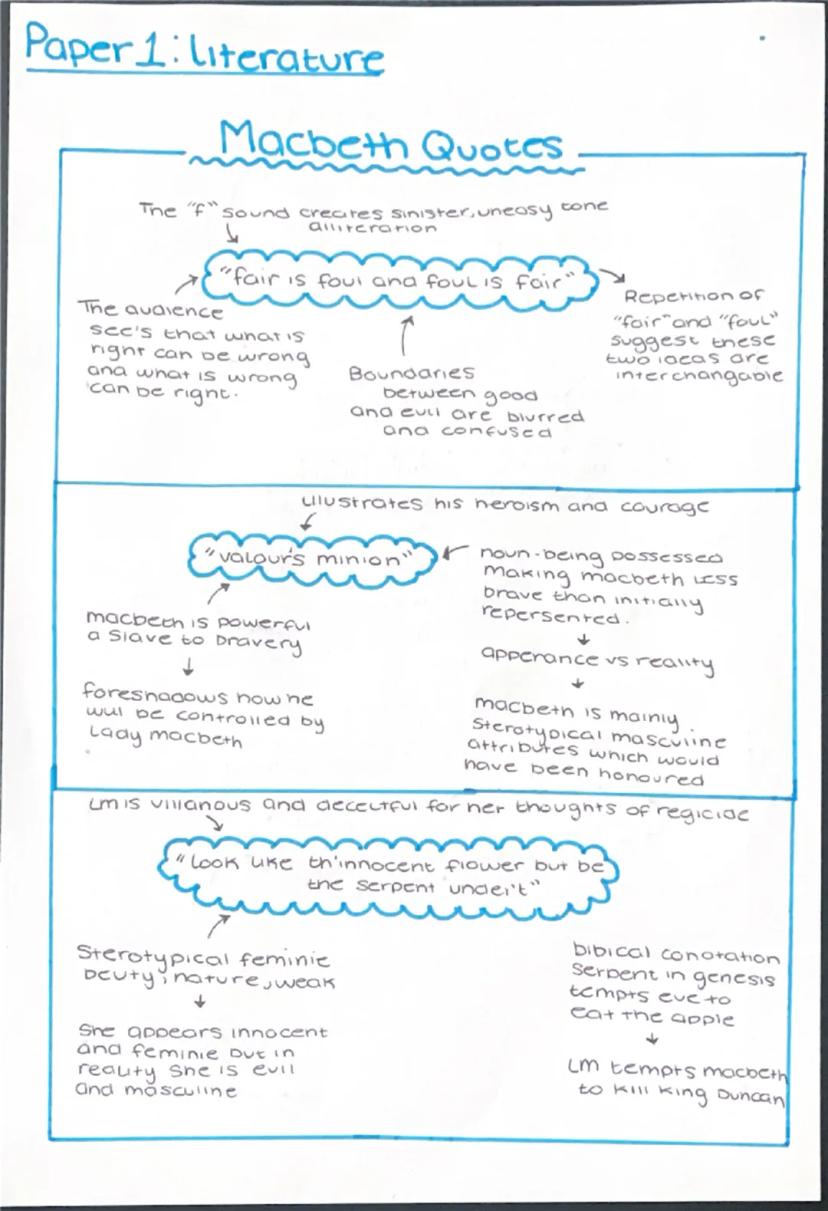 Paper 1: literature
Macbeth Quotes
The "f" sound creates sinister, uneasy tone
alliteration
"fair is foul and foul is fair"
The audience
see's that what is
right can be wrong
and what is wrong
can be right.
Boundaries
between good
and evil are blurred
and confused
Repetition of
"fair" and "foul"
suggest these
two ideas are
interchangable
illustrates his heroism and courage
"valour's minion"
macbeth is powerful
a slave to bravery
↓
foreshadows how he
will be controlled by
Lady macbeth
noun-being possessed
Making macbeth less
brave than initially
repersented.
↓
apperance vs reality
↓
macbeth is mainly
sterotypical masculine
attributes which would
have been honoured
LM is villanous and deceitful for her thoughts of regicide
"look like th'innocent flower but be
the serpent under't"
Sterotypical feminie
beuty, nature, weak
↓
She appears innocent
and feminie but in
reality She is evil
and masculine
bibical conotation
serpent in genesis
tempts eve to
eat the apple
↓
LM tempts macbeth
to kill King Duncan